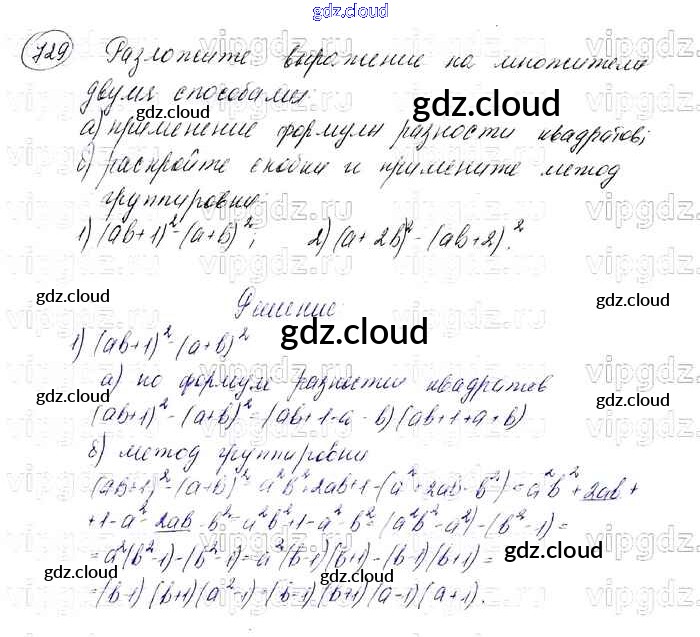 gdz.cloud
729 Разложите выражение на множители
двумя способами:
а) применение формулы разности квадратов;
б) раскройте скобки и примените метод
группировки:
1) (ab+1)²-(a+b)²; 2) (a+2b)²-(ab+2)².
gdz.cloud
Решение:
gdz.cloud
1) (ab+1)²-(a+b)²
а) по формуле разности квадратов
(ab+1)²-(a+b)²=(ab+1-a-b)(ab+1+a+b)
б) метод группировки
(ab+1)²-(a+b)²=a²b²+2ab+1-(a²+2ab+b²)=a²b²+2ab+
+1-a²-2ab-b²=a²b²+1-a²-b²=(a²b²-a²)-(b²-1)=
=a²(b²-1)-(b²-1)=a²(b-1)(b+1)-(b-1)(b+1)=
=(b-1)(b+1)(a²-1)=(b-1)(b+1)(a-1)(a+1).